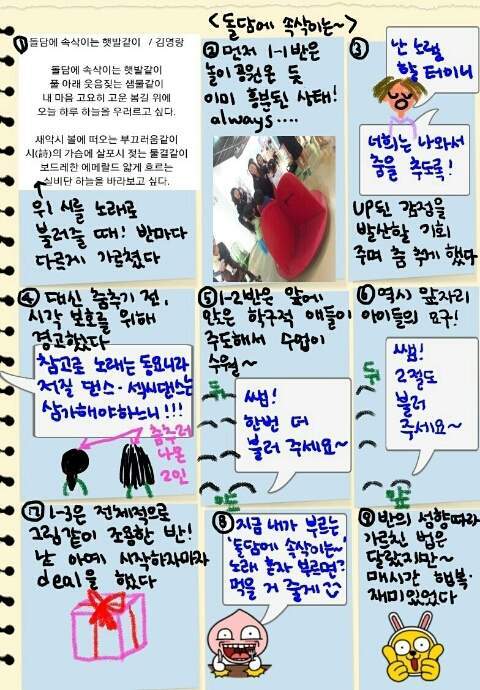 <돌담에 속삭이는~>
① 돌담에 속삭이는 햇발같이 / 김영랑
돌담에 속삭이는 햇발같이
풀 아래 웃음짓는 샘물같이
내 마음 고요히 고운 봄길 위에
오늘 하루 하늘을 우러르고 싶다.
새악시 볼에 떠오는 부끄러움같이
시(詩)의 가슴에 살포시 젖는 물결같이
보드레한 에메랄드 얇게 흐르는
실비단 하늘을 바라보고 싶다.
위 시를 노래로
불러줄 때! 반마다
다르게 가르쳤다
② 먼저 1-1반은
놀이공원온 듯
이미 흥분된 상태!
always....
③
난 노래
할 터이니
너희는 나와서
춤을 추도록!
UP된 감정을
발산할 기회
주며 춤 추게 했다
④ 대신 춤추기 전,
시각 보호를 위해
경고했다
참고로 노래는 동요니라
저질 댄스·섹시댄스는
삼가해야하느니!!!
춤추러
나온
2인
⑤ 1-2반은 앞에
앉은 학구적 애들이
주도해서 수업이
수월~
뒤
쌤!
한번 더
불러 주세요~
앞
⑥ 역시 앞자리
아이들의 요구!
뒤
쌤!
2절도
불러
주세요~
앞
⑦ 1-3은 전체적으로
그림같이 조용한 반!
난 아예 시작하자마자
deal을 했다
⑧ 지금 내가 부르는
'돌담에 속삭이는~'
노래 혼자 부르면?
먹을 거 줄게
⑨ 반의 성향따라
가르친 법은
달랐지만~
매시간 행복·
재미있었다